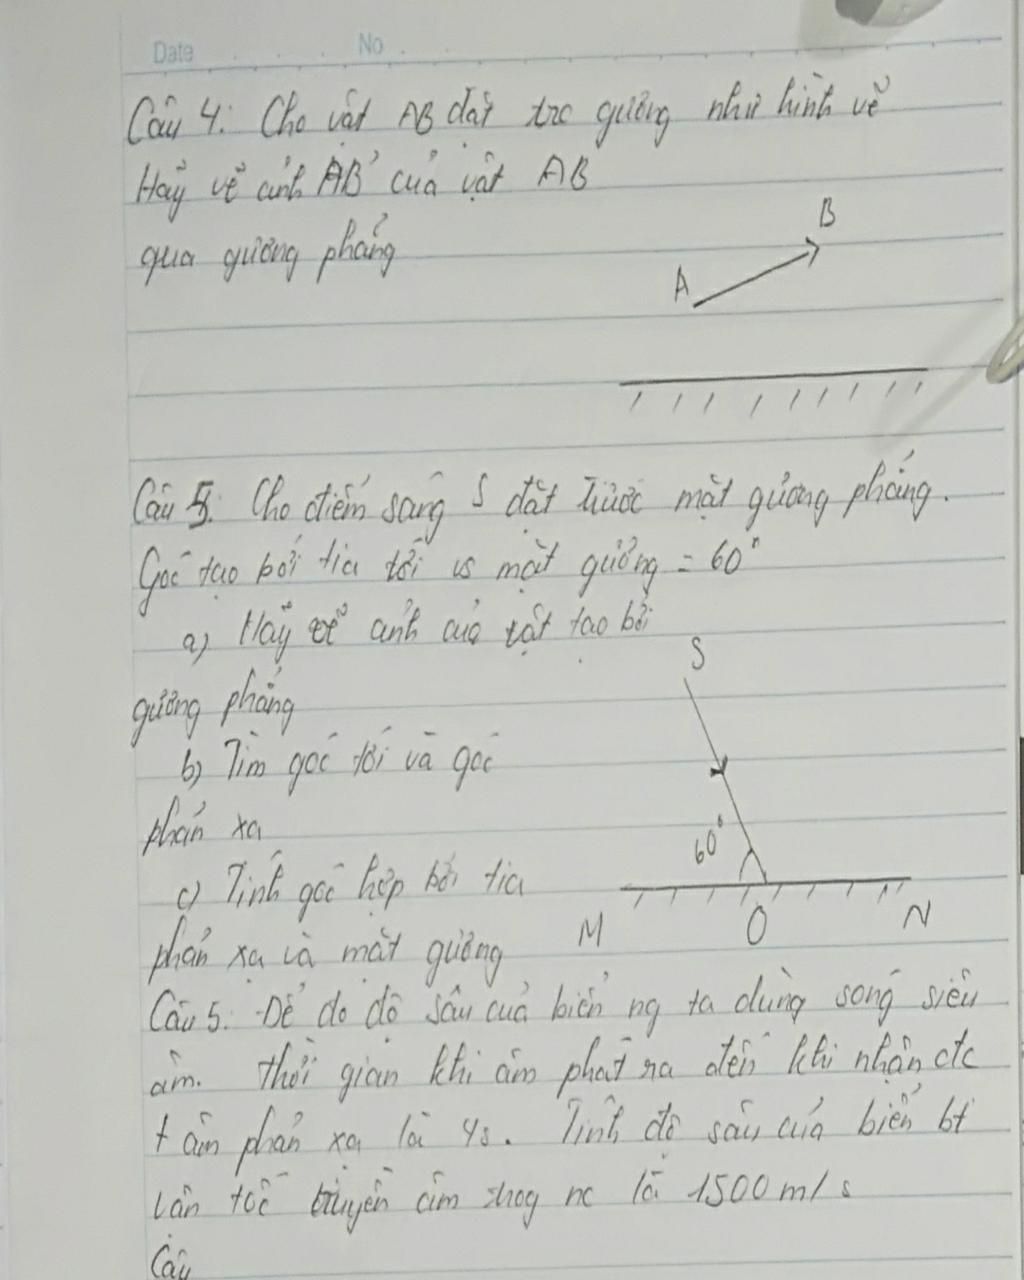 Date No
Câu 4: Cho vật AB đặt trc gương như hình vẽ
Hãy vẽ ảnh A'B' của vật AB
qua gương phẳng
B
A
Câu 5: Cho điểm sáng S đặt trước mặt gương phẳng.
Góc tạo bởi tia tới vs mặt gương = 60°
a) Hãy vẽ ảnh của vật tạo bởi
S
gương phẳng
b) Tìm góc tới và góc
phản xạ
60°
c) Tính góc hợp bởi tia
M O N
phản xạ và mặt gương
Câu 5. Để đo độ sâu của biển ng ta dùng sóng siêu
âm. Thời gian khi âm phát ra đến khi nhận đc
+ âm phản xạ là 4s. Tính độ sâu của biển bt
vận tốc truyền âm trog nc là 1500 m/s
Câu